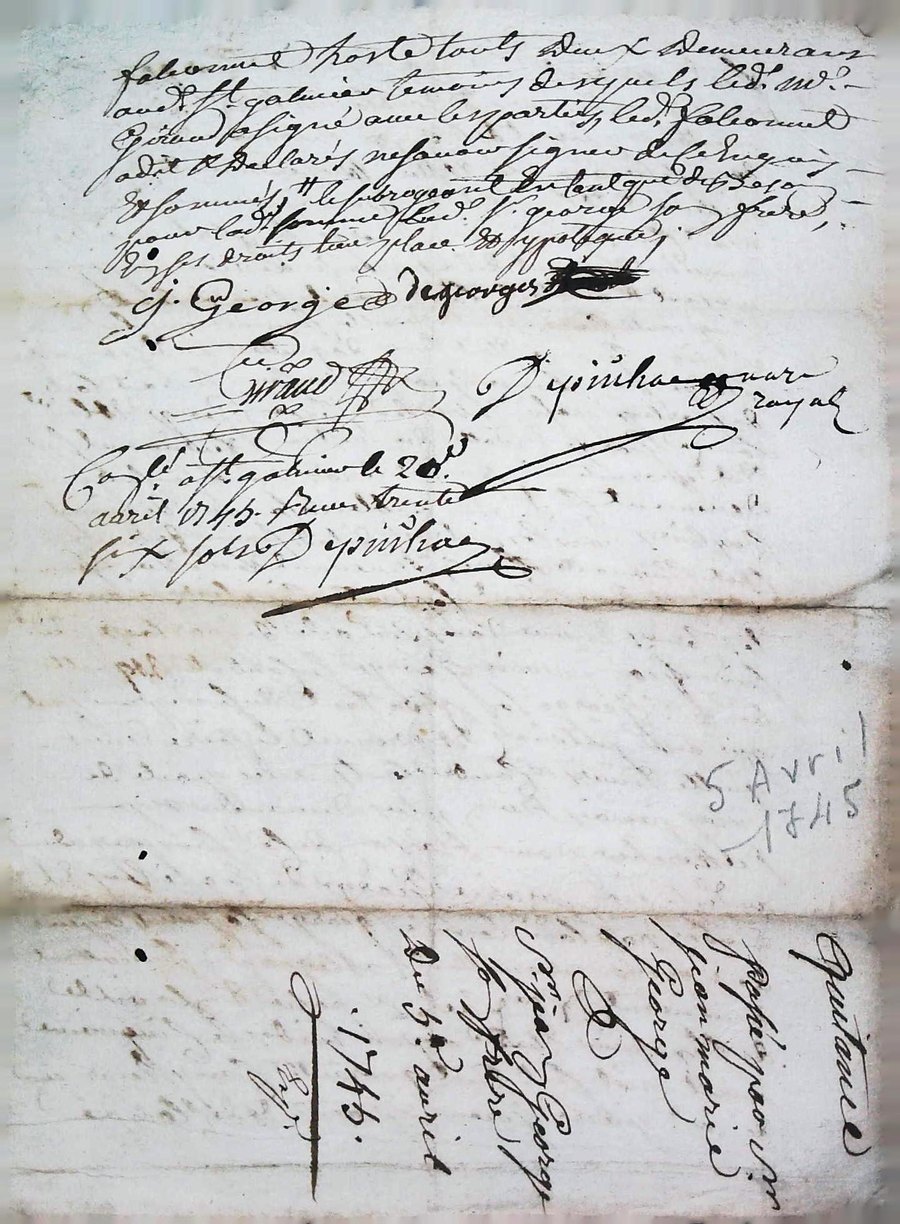 faleonnet hoste touts deux demeurans
aud. St. galmier temoins desquels led. Me.
Giraud a signé avec les parties, led. faleonnet
a dit & declarés ne savoir signer de ce enquis
& sommés, # le subrogeant en tant que de besoin
pour lad. somme led. Sr. george son frere,
en ses droits lieu place & hypoteque;
J. M George degeorges
Giraud
Depiuhac nore
royal
Conlé. a St. galmier le 20e.
avril 1745. Reçu trente
six sols Depiuhac
5 Avril
1745
Quittance
passé par Sr
jean marie
George
a
Sr. jean George
son frere
Du 5e. avril
1745.